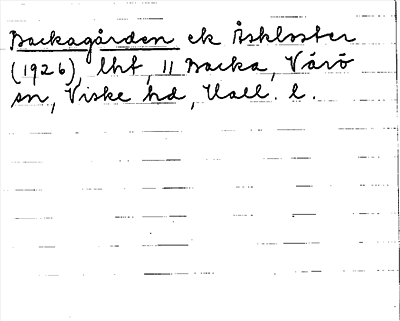 Backagården ek Åskloster
(1926), lht, 11 Backa, Värö
sn, Viske hd, Hall. l.